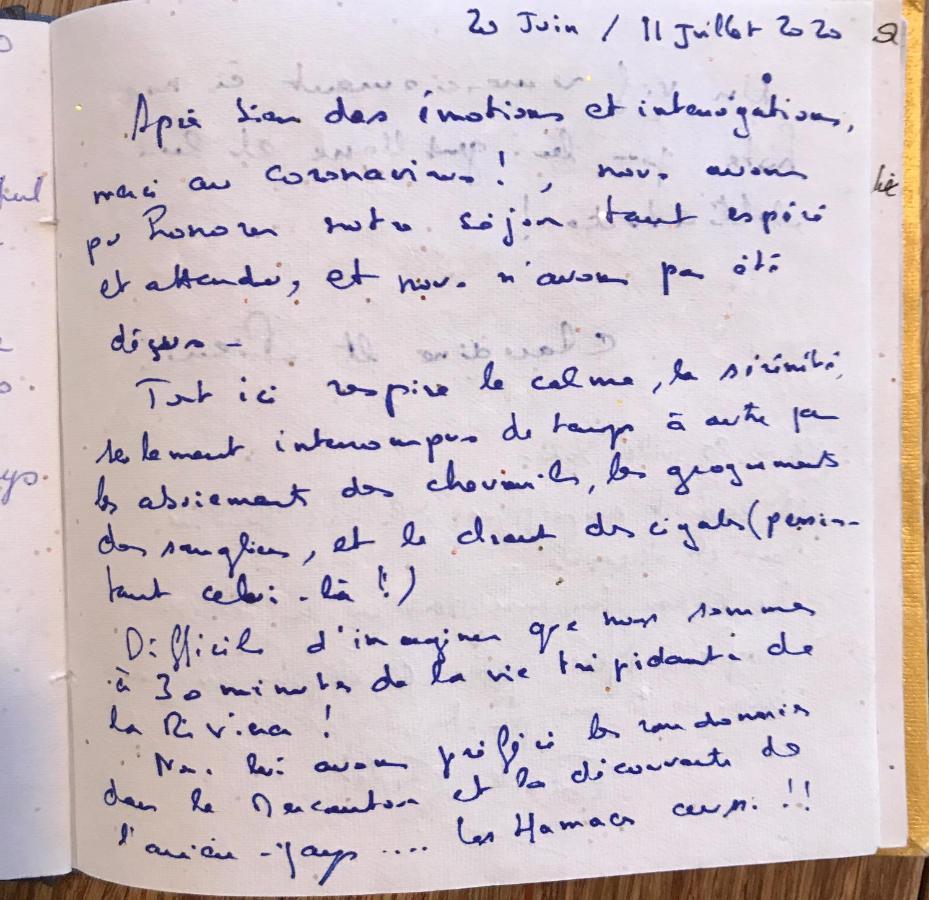 20 Juin / 11 Juillet 2020
Après bien des émotions et interrogations,
merci au coronavirus !, nous avons
pu honorer notre séjour tant espéré
et attendu, et nous n'avons pas été
déçus -
Tout ici respire le calme, la sérénité,
seulement interrompus de temps à autre par
les aboiements des chevreuils, les grognements
des sangliers, et le chant des cigales (persis-
tant celui-là !!)
Difficile d'imaginer que nous sommes
à 30 minutes de la vie trépidante de
la Riviera !
Nous lui avons préféré les randonnées
dans le Mercantour et la découverte de
l'arrière-pays .... les Hamacs aussi !!